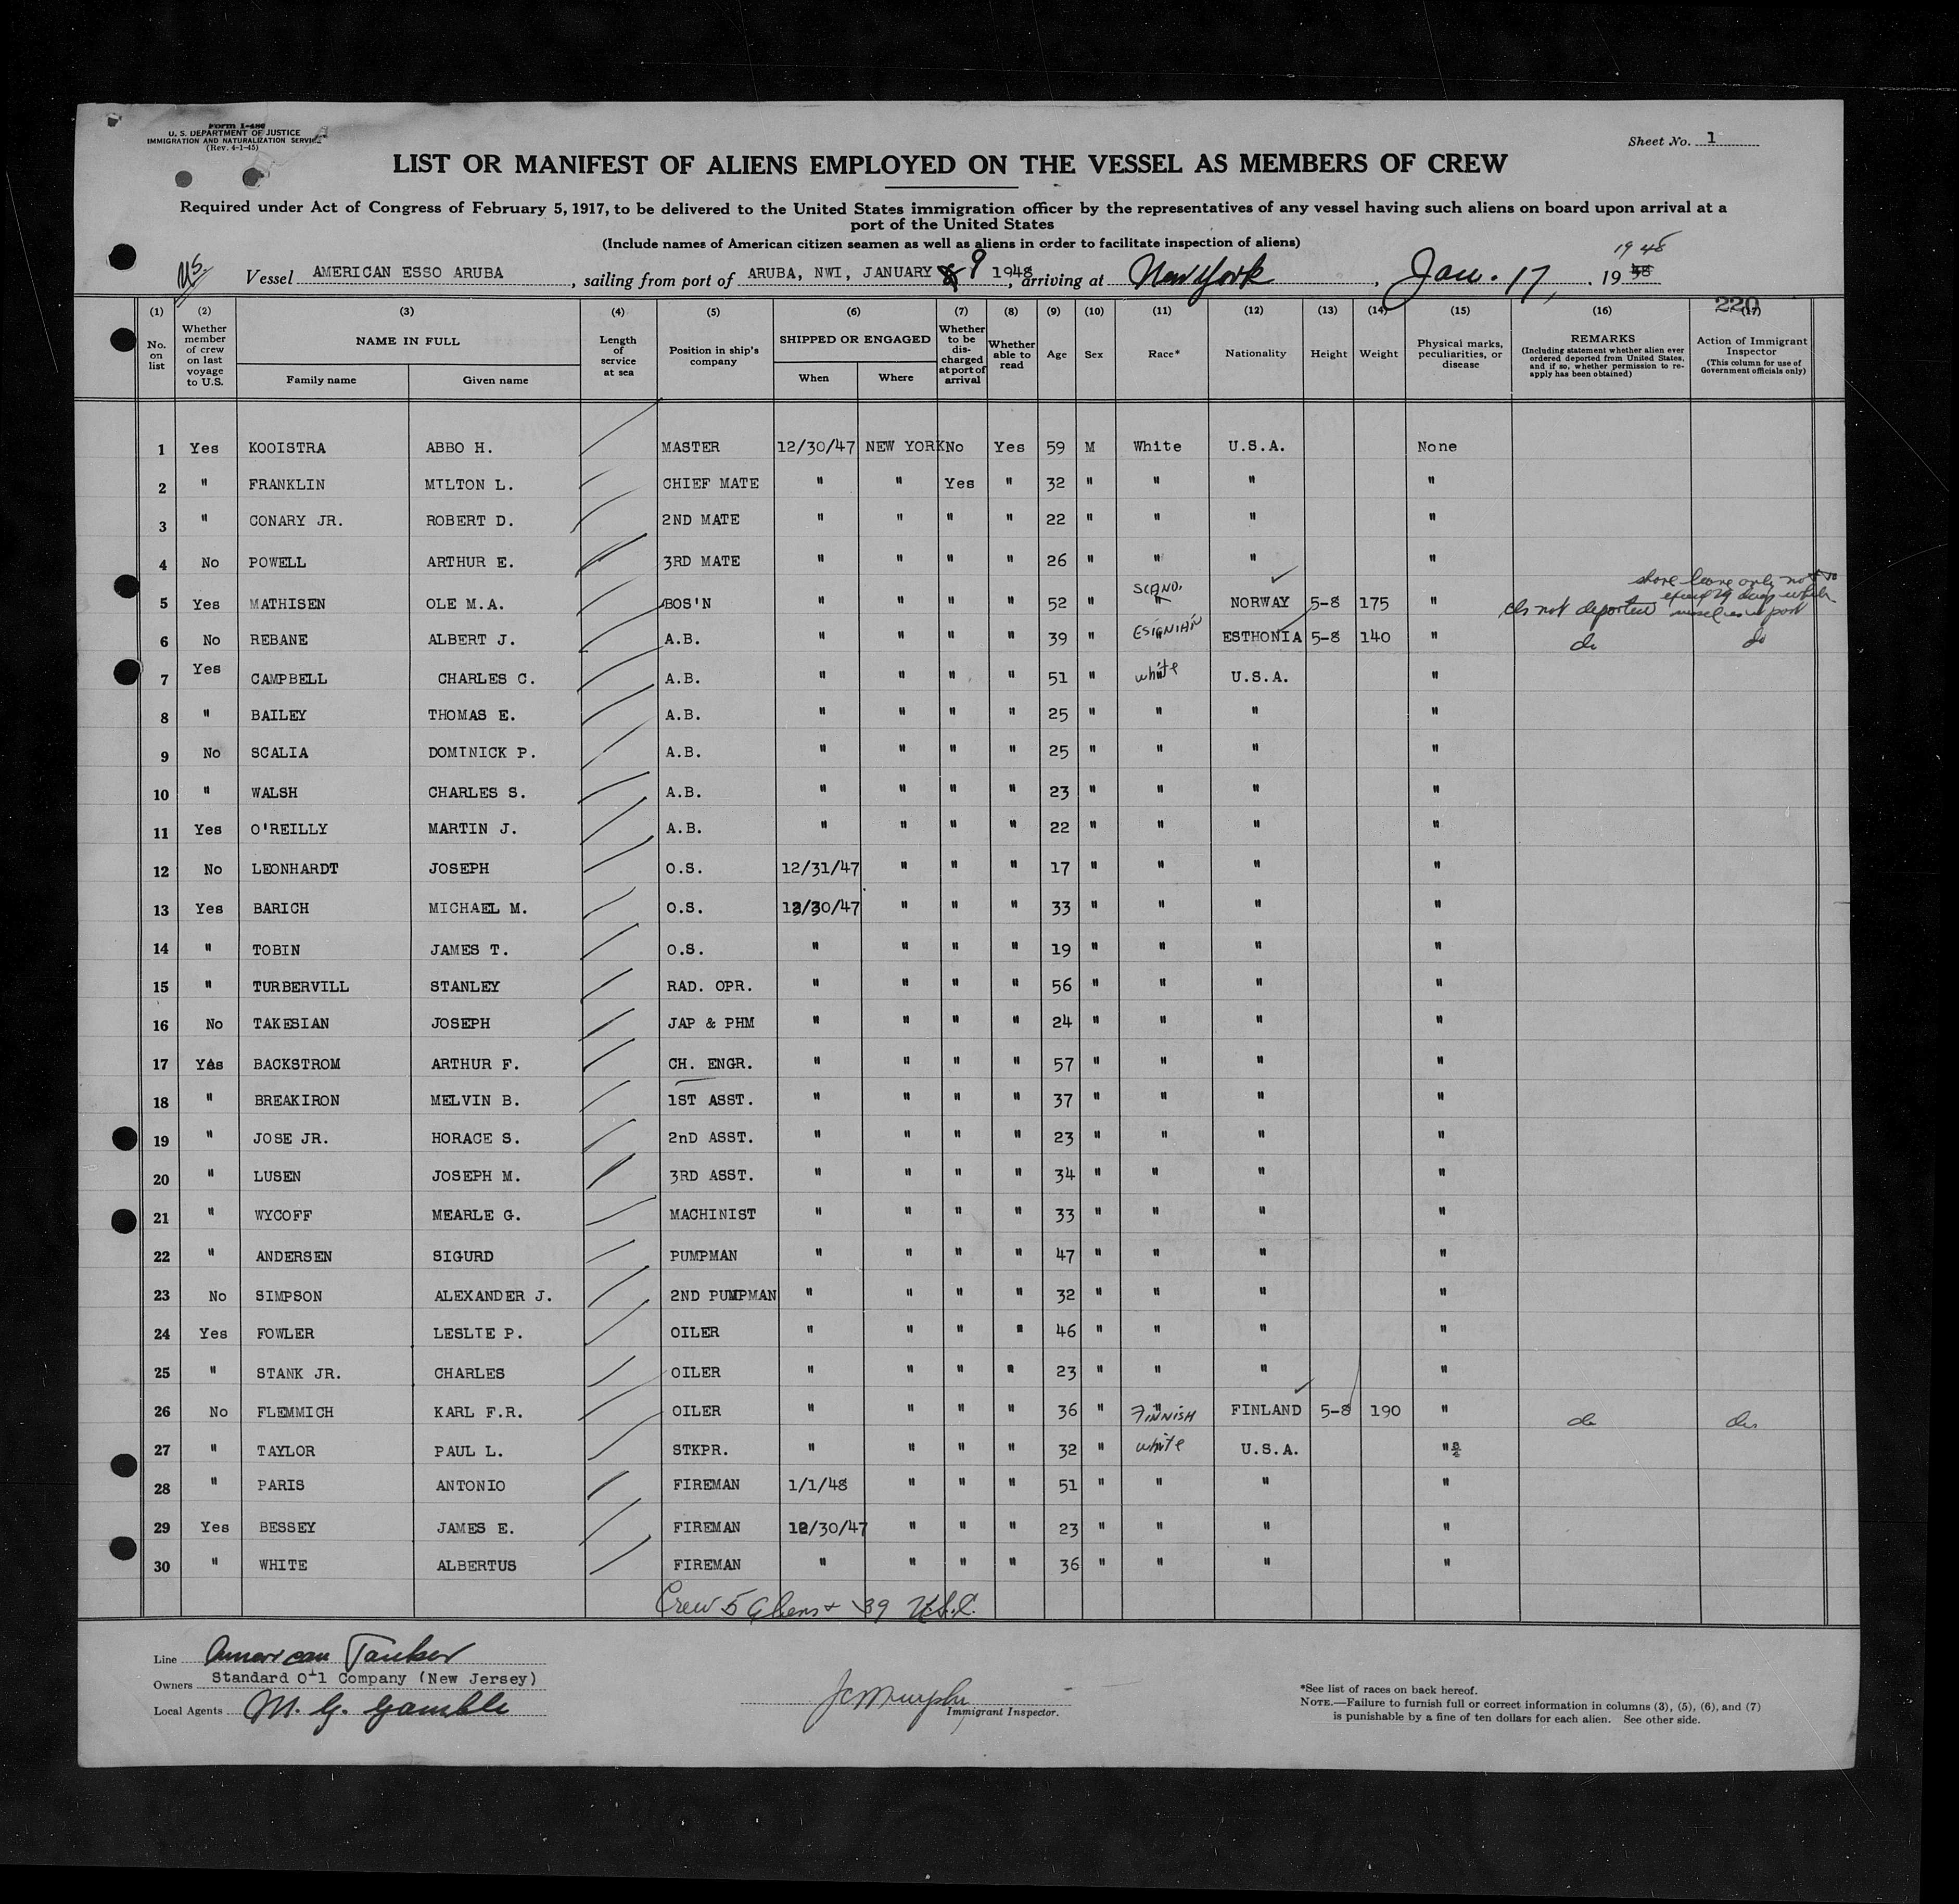 Form I-480
U. S. DEPARTMENT OF JUSTICE
IMMIGRATION AND NATURALIZATION SERVICE
(Rev. 4-1-45)
Sheet No. 1
LIST OR MANIFEST OF ALIENS EMPLOYED ON THE VESSEL AS MEMBERS OF CREW
Required under Act of Congress of February 5, 1917, to be delivered to the United States immigration officer by the representatives of any vessel having such aliens on board upon arrival at a
port of the United States
(Include names of American citizen seamen as well as aliens in order to facilitate inspection of aliens)
1948
US. Vessel AMERICAN ESSO ARUBA, sailing from port of ARUBA, NWI, JANUARY 9 1948, arriving at New York, Jan. 17, 19
220
(1) (2) (3) (4) (5) (6) (7) (8) (9) (10) (11) (12) (13) (14) (15) (16) (17)
No. on list
Whether member of crew on last voyage to U.S.
NAME IN FULL
Family name
Given name
Length of service at sea
Position in ship's company
SHIPPED OR ENGAGED
When
Where
Whether to be discharged at port of arrival
Whether able to read
Age
Sex
Race*
Nationality
Height
Weight
Physical marks, peculiarities, or disease
REMARKS
(Including statement whether alien ever ordered deported from United States, and if so, whether permission to re-apply has been obtained)
Action of Immigrant Inspector
(This column for use of Government officials only)
1 Yes KOOISTRA ABBO H. MASTER 12/30/47 NEW YORK No Yes 59 M White U.S.A. None
2 " FRANKLIN MILTON L. CHIEF MATE " " Yes " 32 " " " "
3 " CONARY JR. ROBERT D. 2ND MATE " " " " 22 " " " "
4 No POWELL ARTHUR E. 3RD MATE " " " " 26 " " " "
5 Yes MATHISEN OLE M.A. BOS'N " " " " 52 " SCAND. " NORWAY 5-8 175 " not deported shore leave only not to while vessel is in port
6 No REBANE ALBERT J. A.B. " " " " 39 " ESTONIAN ESTHONIA 5-8 140 " do do
7 Yes CAMPBELL CHARLES C. A.B. " " " " 51 " white U.S.A. "
8 " BAILEY THOMAS E. A.B. " " " " 25 " " " "
9 No SCALIA DOMINICK P. A.B. " " " " 25 " " " "
10 " WALSH CHARLES S. A.B. " " " " 23 " " " "
11 Yes O'REILLY MARTIN J. A.B. " " " " 22 " " " "
12 No LEONHARDT JOSEPH O.S. 12/31/47 " " " 17 " " " "
13 Yes BARICH MICHAEL M. O.S. 12/30/47 " " " 33 " " " "
14 " TOBIN JAMES T. O.S. " " " " 19 " " " "
15 " TURBERVILL STANLEY RAD. OPR. " " " " 56 " " " "
16 No TAKESIAN JOSEPH JAP & PHM " " " " 24 " " " "
17 Yes BACKSTROM ARTHUR F. CH. ENGR. " " " " 57 " " " "
18 " BREAKIRON MELVIN B. 1ST ASST. " " " " 37 " " " "
19 " JOSE JR. HORACE S. 2nD ASST. " " " " 23 " " " "
20 " LUSEN JOSEPH M. 3RD ASST. " " " " 34 " " " "
21 " WYCOFF MEARLE G. MACHINIST " " " " 33 " " " "
22 " ANDERSEN SIGURD PUMPMAN " " " " 47 " " " "
23 No SIMPSON ALEXANDER J. 2ND PUMPMAN " " " " 32 " " " "
24 Yes FOWLER LESLIE P. OILER " " " " 46 " " " "
25 " STANK JR. CHARLES OILER " " " " 23 " " " "
26 No FLEMMICH KARL F.R. OILER " " " " 36 " FINNISH FINLAND 5-8 190 " do do
27 " TAYLOR PAUL L. STKPR. " " " " 32 " white U.S.A. "
28 " PARIS ANTONIO FIREMAN 1/1/48 " " " 51 " " " "
29 Yes BESSEY JAMES E. FIREMAN 12/30/47 " " " 23 " " " "
30 " WHITE ALBERTUS FIREMAN " " " " 36 " " " "
Crew 5 Aliens + 39 U.S.C.
Line American Tanker
Owners Standard Oil Company (New Jersey)
Local Agents M. G. Gamble
JC Murphy
Immigrant Inspector.
*See list of races on back hereof.
NOTE.—Failure to furnish full or correct information in columns (3), (5), (6), and (7)
is punishable by a fine of ten dollars for each alien. See other side.